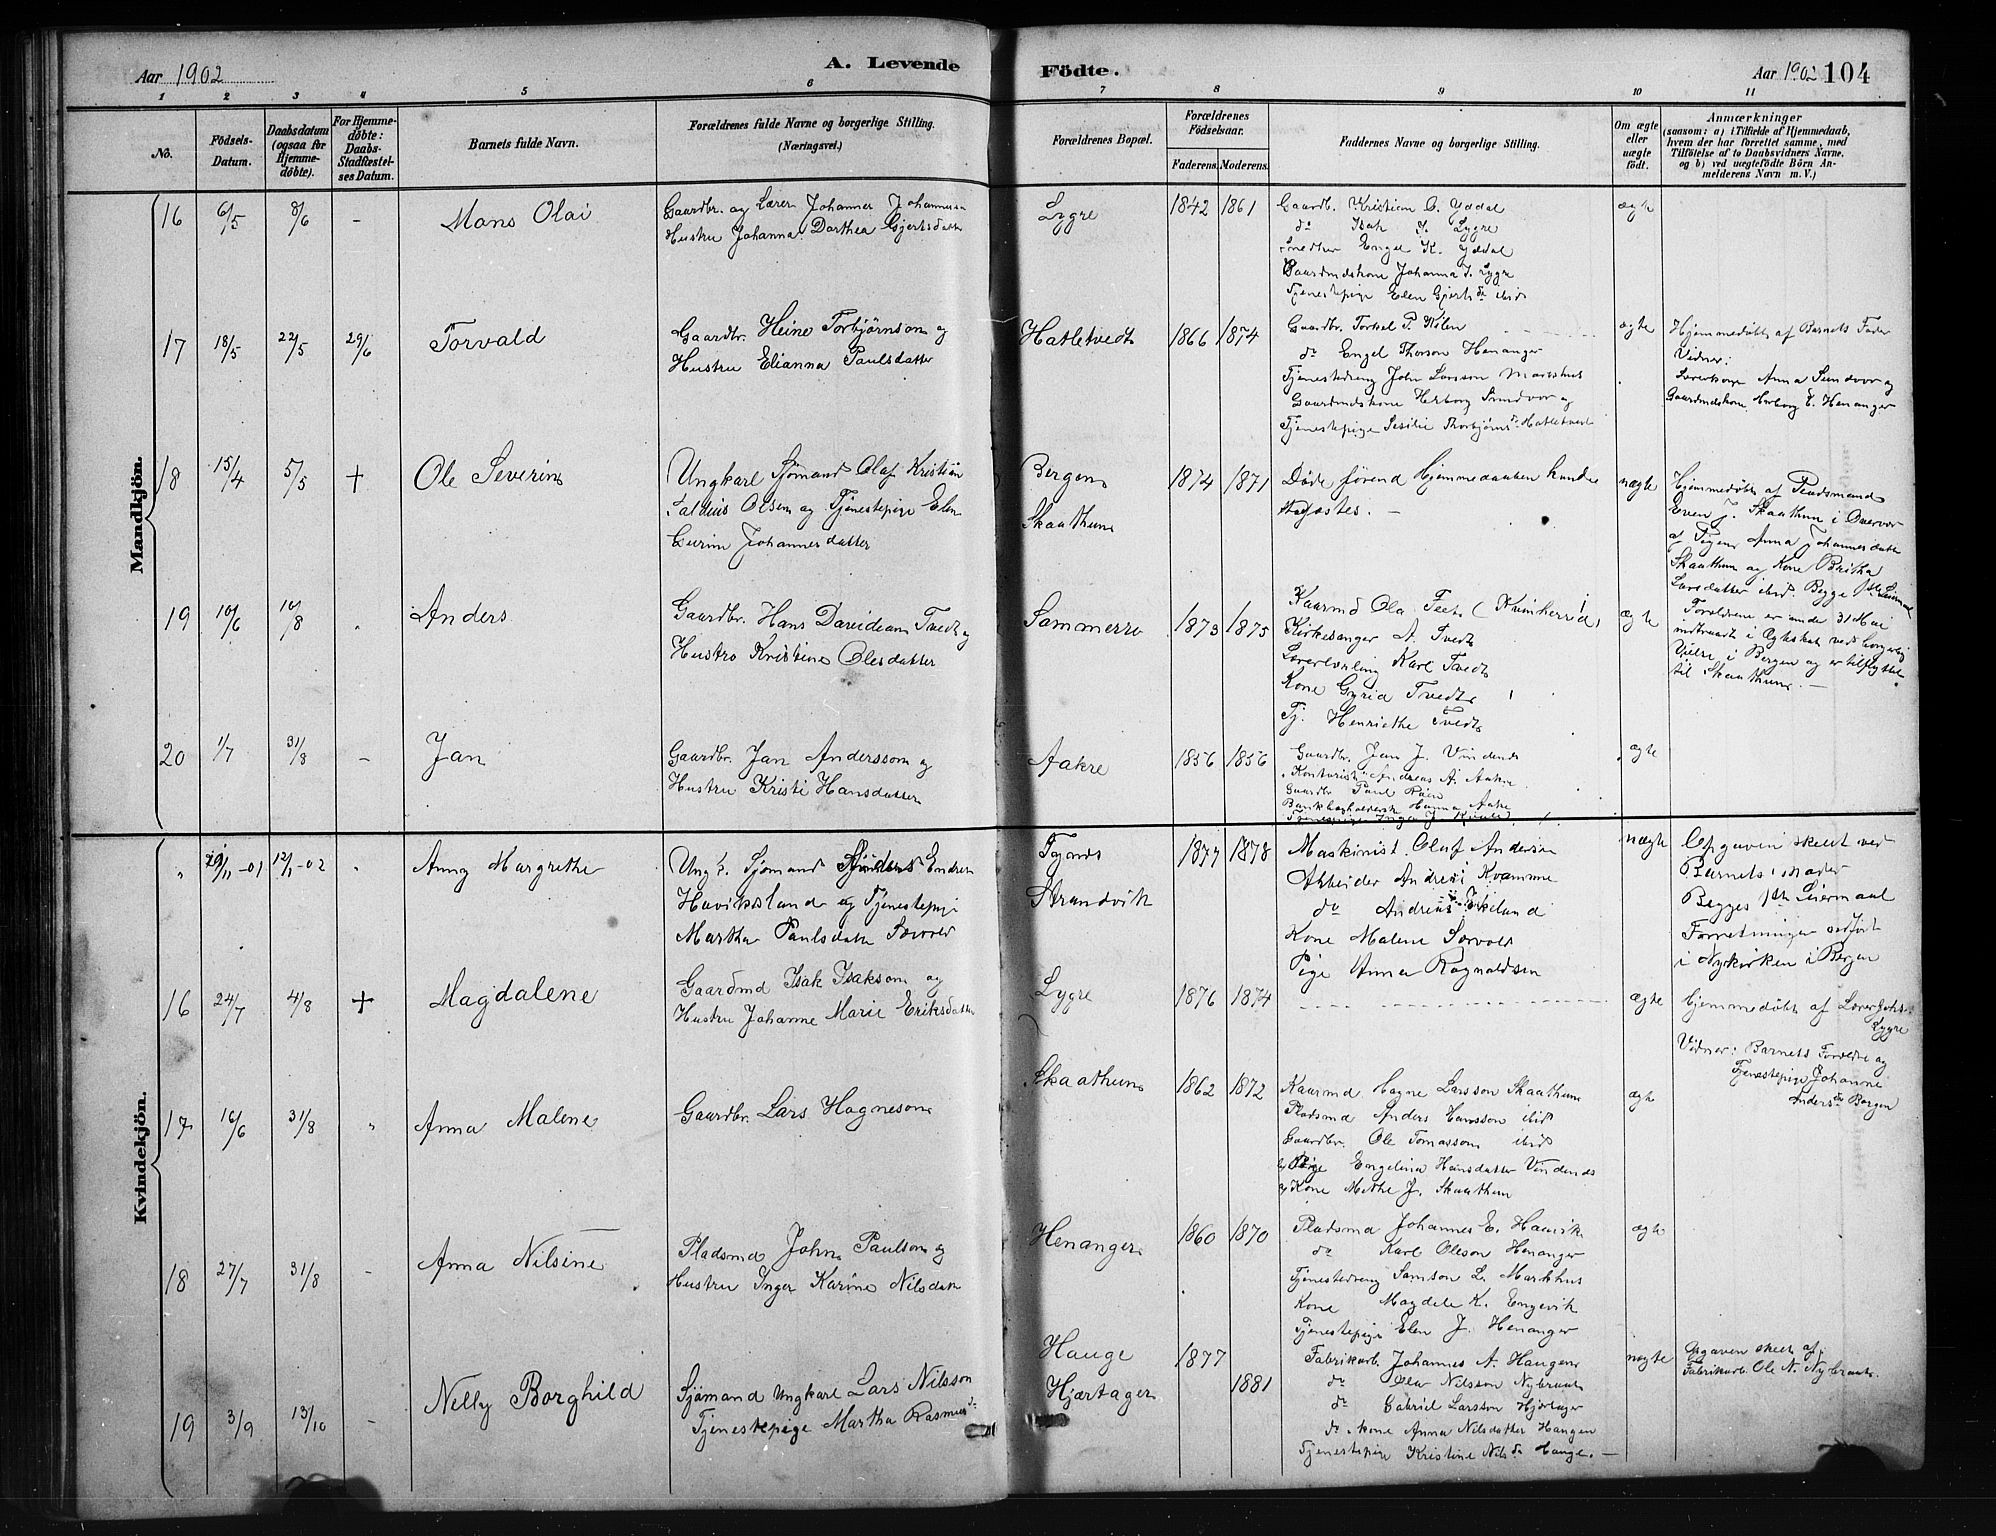 Aar 1902
A. Levende Födte.
Aar 1902 104
1 2 3 4 5 6 7 8 9 10 11
No.
Födsels-Datum.
Daabsdatum (ogsaa for Hjemme-döbte).
For Hjemme-döbte: Daabs-Stadfæstel-ses Datum.
Barnets fulde Navn.
Forældrenes fulde Navne og borgerlige Stilling. (Næringsvei.)
Forældrenes Bopæl.
Forældrenes Födselsaar.
Faderens. Moderens.
Faddernes Navne og borgerlige Stilling.
Om ægte eller uægte födt.
Anmærkninger
(saasom: a) i Tilfælde af Hjemmedaab,
hvem der har forrettet samme, med
Tilföielse af to Daabsvidners Navne,
og b) ved uægtefödte Börn An-
melderens Navn m. V.)
Mandkjön.
16 6/5 8/6 - Mons Olai
Gaardbr. og Lærer Johannes Johannessen
Hustru Johanna Dorthea Gjertsdatter
Lygre 1842 1861
Gaardb. Kristian O. Yddal
do Isak I. Lygre
Engel K. Yddal
Gaardmdskone Johanna I. Lygre
Tjenestepige Elen Gjertsdr ibid
ægte
17 18/5 22/5 29/6 Torvald
Gaardbr. Heine Torbjörnson og
Hustru Elianna Paulsdatter
Hatletvedt 1866 1874
Gaardbr. Torkel P. Kilen
do Engel Thorson Henanger
Tjenestedreng John Larsson Markhus
Gaardmdskone Herborg Sundvor og
Tjenestepige Sesilie Thorbjörnsdr Hatletvedt
ægte
Hjemmedøbt af Barnets Fader
Vidner:
Anna Sundvor og
Gaardmdskone Herborg E. Henanger
18 15/4 5/5 + Ole Severin
Ungkarl Sjömand Olaf Kristian
Olsen og Tjenestepige Elen
Gurine Johannesdatter
Bergen
Skaathun
1874 1871
Døde førend Hjemmedaaben kunde
stadfæstes. -
uægte
Hjemmedøbt af Pladsmand
Even J. Skaathun i Overvær
af Pigen Anna Johannesdatter
Skaathun og Kone Britha
Larsdatter ibid. Begge 1ste Leiermaal
Forældrene er under 31 Mai
indtraadt i Ægteskab ved borgerlig
Vielse i Bergen og er tilflyttet
til Skaathun. -
19 10/6 10/8 Anders
Gaardbr. Hans Davidson Tvedt og
Hustro Kristine Olesdatter
Sammerro 1873 1875
Kaarmd Ola Teet (Kvinherrid)
Kirkesanger A. Tvedt
Karl Tvedt
Kone Gyrid Tvedt
Tj. Henriethe Tvedt
ægte
20 1/7 31/8 - Jan
Gaardbr. Jan Andersson og
Hustru Kristi Hansdatter
Aakre 1856 1856
Gaardbr. Jan J. Vindenes
Kontorist Andreas A. Aakre
Gaardbr Paul Röen
Hanna Aakre
Tjenestepige Inga J.
ægte
Kvindekjön.
" 29/11-01 12/1-02 " Anny Margrethe
Ungk. Sjömand Endre
Haviksland og Tjenestepige
Martha Paulsdatter Sævold
Fynes
Strandvik
1877 1878
Maskinist Oluf Andersen
Arbeider Andreas Kvamme
do Andreas Økeland
Kone Malene Sævold
Pige Anna Ragnaldsen
uægte
Opgaven skeet ved
Barnets moder
Begges 1ste Leiermaal
Forretningen udført
i Nykirken i Bergen
16 24/7 4/8 + Magdalene
Gaardmd Isak Isakson og
Hustru Johanne Marie Eriksdatter
Lygre 1876 1874
ægte
Hjemmedøbt af Lærer Johs.
Lygre
Vidner: Barnets Forældre og
Tjenestepige Johanne
Andersdr Borgen
17 16/6 31/8 " Anna Malene
Gaardbr. Lars Hagneson
Skaathun 1862 1872
Kaarmd Hagne Larsson Skaathun
Pladsmd Anders Hansson ibid
Gaardbr. Ole Tomasson ibid
Pige Engelina Hansdatter Vindenes
Kone Methe J. Skaathun
ægte
18 27/7 31/8 - Anna Nilsine
Pladsmd John Paulson og
Hustru Inger Karine Nilsdatter
Henanger 1860 1870
Pladsmd Johannes E. Havik
do Karl Oleson Henanger
Tjenestedreng Samson L. Markhus
Kone Magdele K. Engevik
Tjenestepige Elen J. Henanger
ægte
19 3/9 13/10 - Nelly Borghild
Sjömand Ungkarl Lars Nilsson
Tjenestepige Martha Rasmusdr
Hauge
Hjærtager
1877
1881
Fabrikarb. Johannes A. Haugen
do Olav Nilsson Nybraat
do Gabriel Larsson Hjertager
do kone Anna Nilsdatter Haugen
Tjenestepige Kristine Nilsdr Hauge. -
uægte
Opgaven skeet af
Fabrikarb. Ole N. Nybraat.